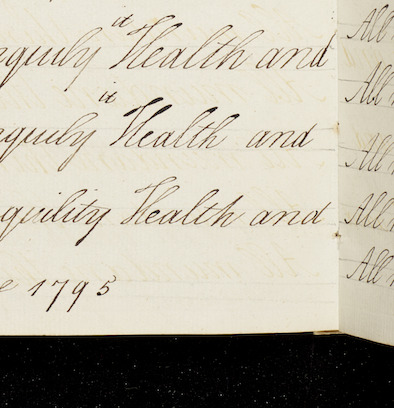 it
nquily Health and
it
nquily Health and
nquility Health and
e 1795
All
All
All
All
All